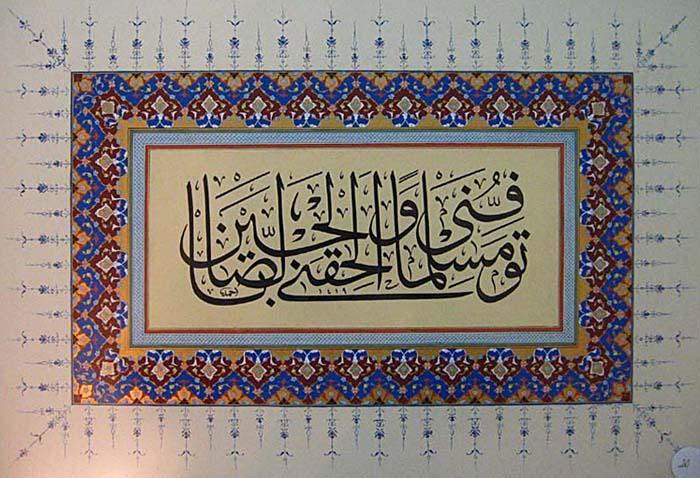 توفني مسلما وألحقني بالصالحين
١٤١٩